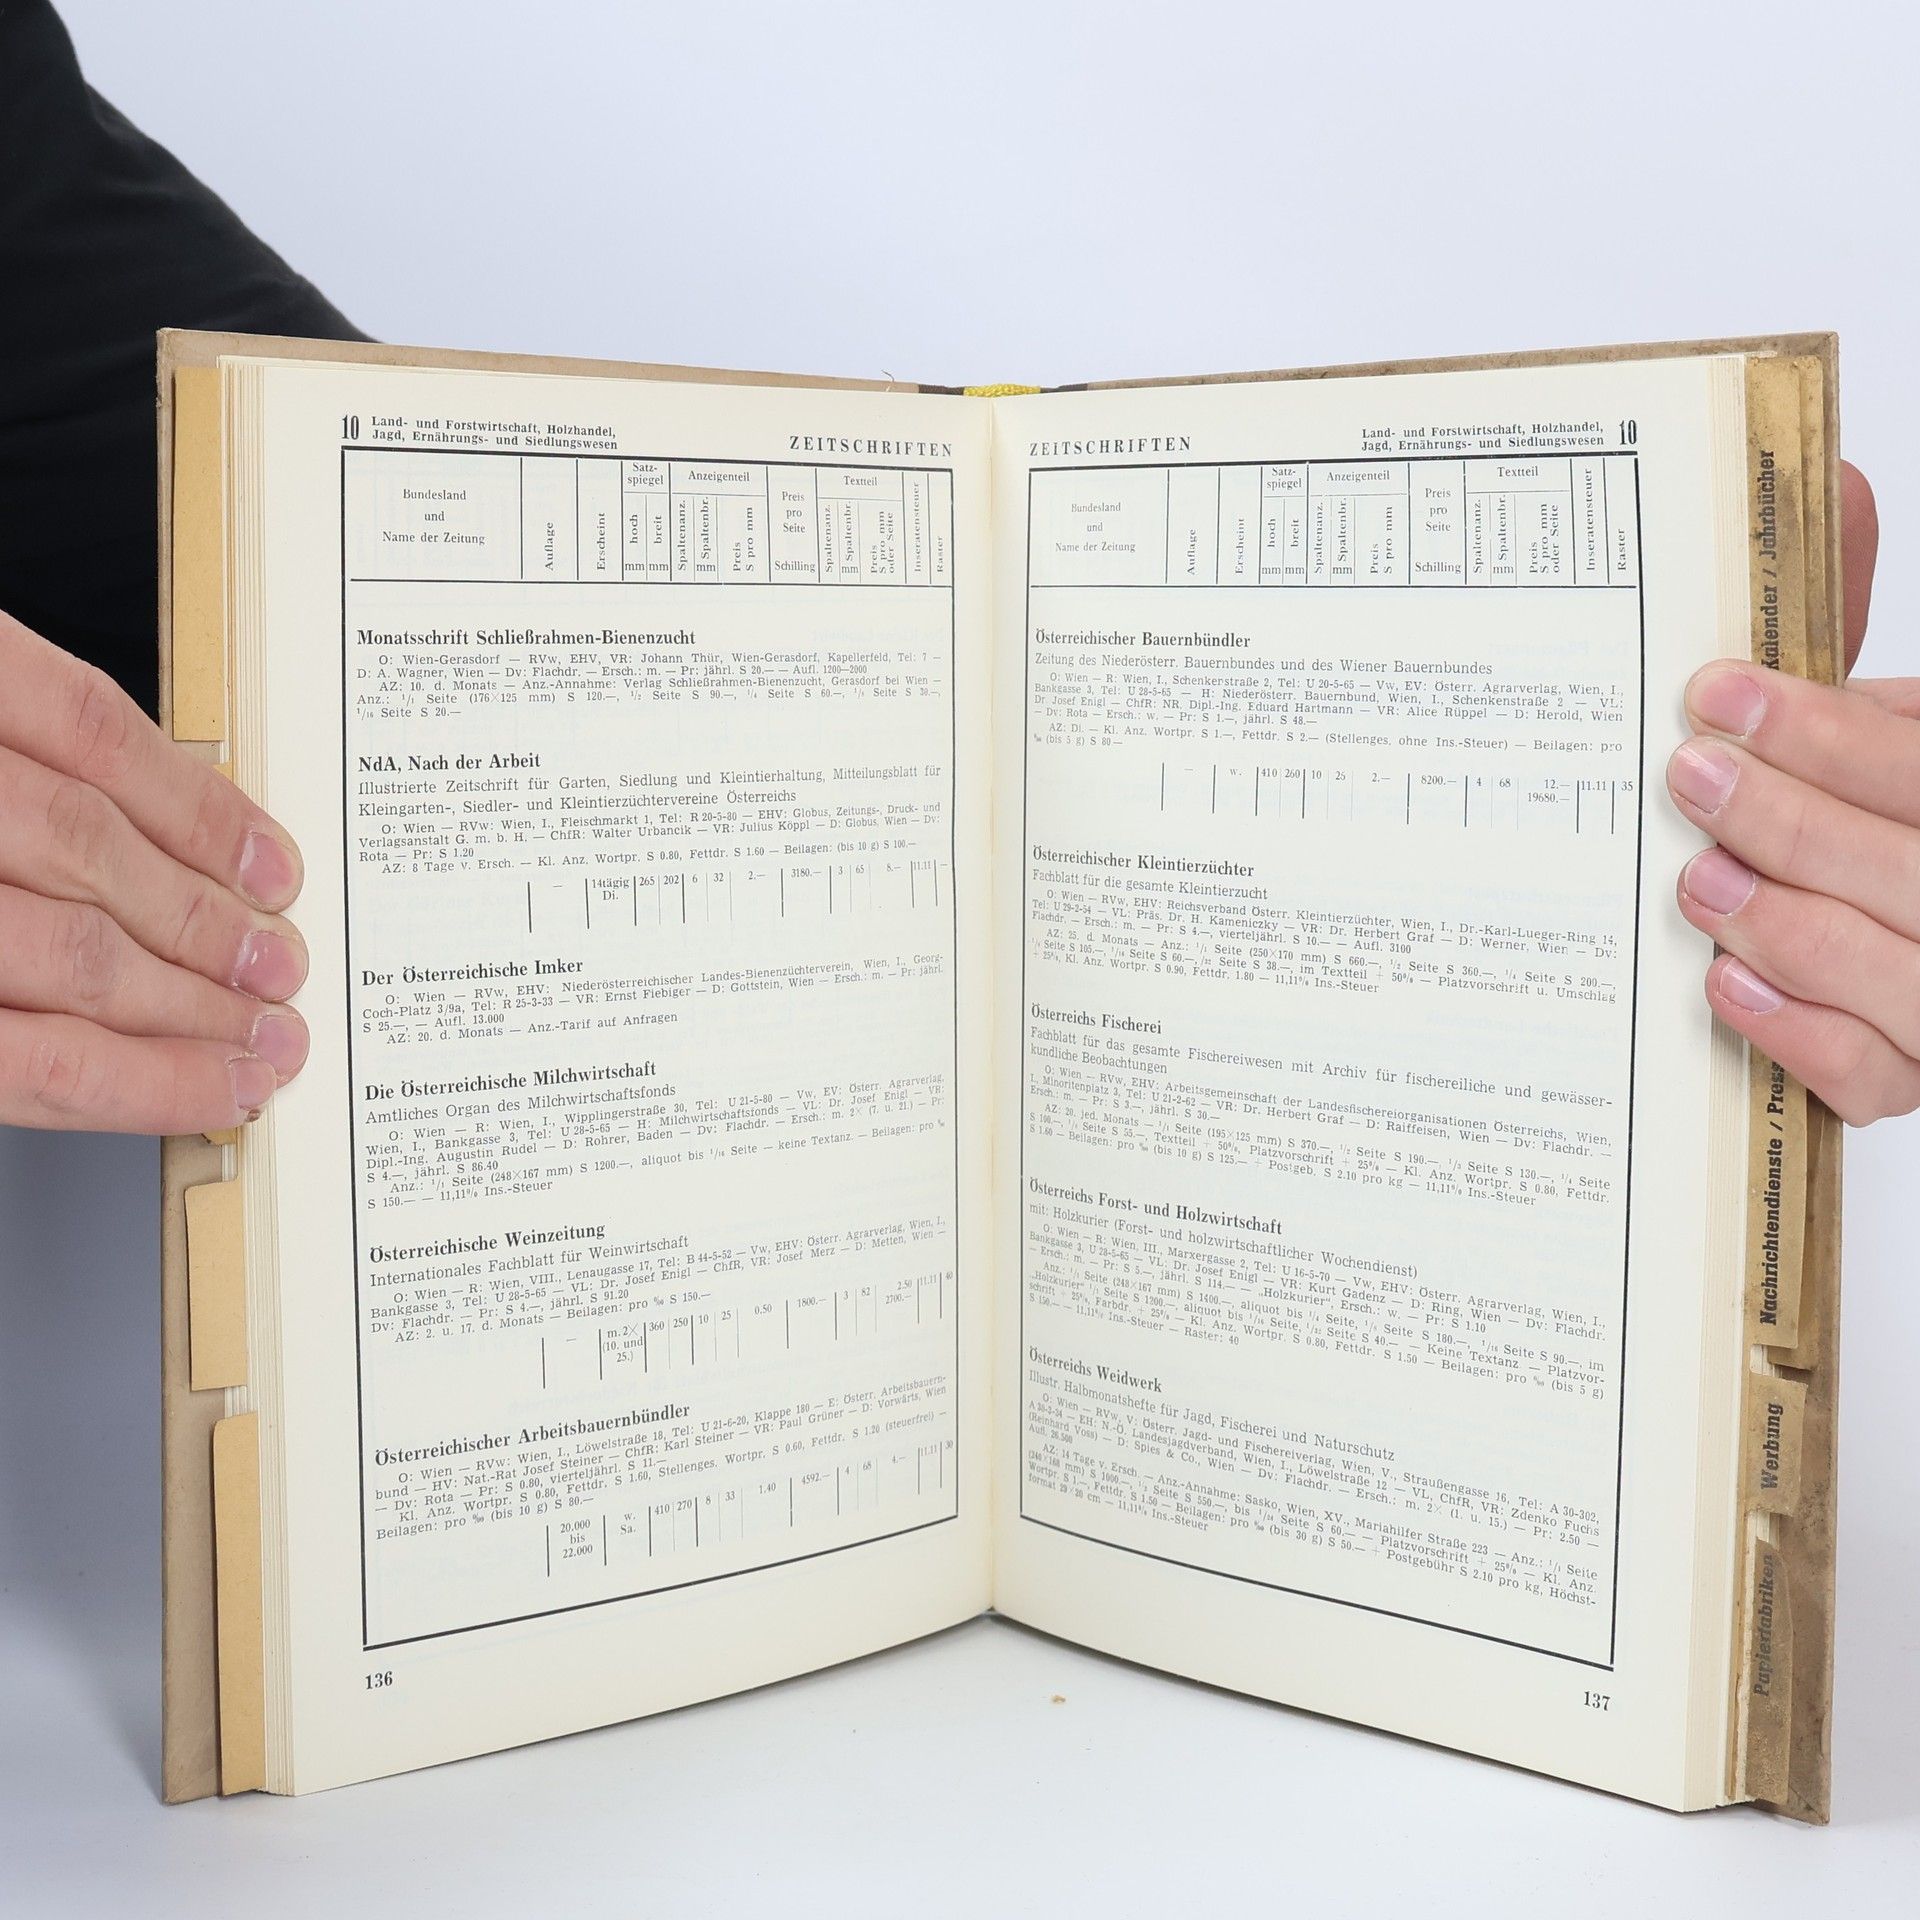 10 Land- und Forstwirtschaft, Holzhandel,
Jagd, Ernährungs- und Siedlungswesen
ZEITSCHRIFTEN
Bundesland
und
Name der Zeitung
Auflage
Erscheint
Satz-
spiegel
hoch
mm
breit
mm
Anzeigenteil
Spaltenanz.
Spaltenbr.
mm
Preis
S pro mm
Preis
pro
Seite
Schilling
Textteil
Spaltenanz.
Spaltenbr.
mm
Preis
S pro mm
oder Seite
Inseratensteuer
Raster
Monatsschrift Schließrahmen-Bienenzucht
O: Wien-Gerasdorf — RVw, EHV, VR: Johann Thür, Wien-Gerasdorf, Kapellerfeld, Tel: 7 —
D: A. Wagner, Wien — Dv: Flachdr. — Ersch.: m. — Pr: jährl. S 20.— — Aufl. 1200—2000
AZ: 10. d. Monats — Anz.-Annahme: Verlag Schließrahmen-Bienenzucht, Gerasdorf bei Wien —
Anz.: 1/1 Seite (176×125 mm) S 120.—, 1/2 Seite S 90.—, 1/4 Seite S 60.—, 1/8 Seite S 30.—,
1/16 Seite S 20.—
NdA, Nach der Arbeit
Illustrierte Zeitschrift für Garten, Siedlung und Kleintierhaltung, Mitteilungsblatt für
Kleingarten-, Siedler- und Kleintierzüchtervereine Österreichs
O: Wien — RVw: Wien, I., Fleischmarkt 1, Tel: R 20-5-80 — EHV: Globus, Zeitungs-, Druck- und
Verlagsanstalt G. m. b. H. — ChfR: Walter Urbancik — VR: Julius Köppl — D: Globus, Wien — Dv:
Rota — Pr: S 1.20
AZ: 8 Tage v. Ersch. — Kl. Anz. Wortpr. S 0.80, Fettdr. S 1.60 — Beilagen: (bis 10 g) S 100.—
— 14tägig 265 202 6 32 2.— 3180.— 3 65 8.— 11.11 —
Di.
Der Österreichische Imker
O: Wien — RVw, EHV: Niederösterreichischer Landes-Bienenzüchterverein, Wien, I., Georg-
Coch-Platz 3/9a, Tel: R 25-3-33 — VR: Ernst Fiebiger — D: Gottstein, Wien — Ersch.: m. — Pr: jährl.
S 25.—, — Aufl. 13.000
AZ: 20. d. Monats — Anz.-Tarif auf Anfragen
Die Österreichische Milchwirtschaft
Amtliches Organ des Milchwirtschaftsfonds
O: Wien — R: Wien, I., Wipplingerstraße 30, Tel: U 21-5-80 — Vw, EV: Österr. Agrarverlag,
Wien, I., Bankgasse 3, Tel: U 28-5-65 — H: Milchwirtschaftsfonds — VL: Dr. Josef Enigl — VR:
Dipl.-Ing. Augustin Rudel — D: Rohrer, Baden — Dv: Flachdr. — Ersch.: m. 2× (7. u. 21.) — Pr:
S 4.—, jährl. S 86.40
Anz.: 1/1 Seite (248×167 mm) S 1200.—, aliquot bis 1/16 Seite — keine Textanz. — Beilagen: pro ‰
S 150.— — 11,11% Ins.-Steuer
Österreichische Weinzeitung
Internationales Fachblatt für Weinwirtschaft
O: Wien — R: Wien, VIII., Lenaugasse 17, Tel: B 44-5-52 — Vw, EHV: Österr. Agrarverlag, Wien, I.,
Bankgasse 3, Tel: U 28-5-65 — VL: Dr. Josef Enigl — ChfR, VR: Josef Merz — D: Metten, Wien —
Dv: Flachdr. — Pr: S 4.—, jährl. S 91.20
AZ: 2. u. 17. d. Monats — Beilagen: pro ‰ S 150.—
— m. 2× 360 250 10 25 0.50 1800.— 3 82 2.50 11.11 40
(10. und 2700.—
25.)
Österreichischer Arbeitsbauernbündler
O: Wien — RVw: Wien, I., Löwelstraße 18, Tel: U 21-6-20, Klappe 180 — E: Österr. Arbeitsbauern-
bund — HV: Nat.-Rat Josef Steiner — ChfR: Karl Steiner — VR: Paul Grüner — D: Vorwärts, Wien
— Dv: Rota — Pr: S 0.80, vierteljährl. S 11.—
Kl. Anz. Wortpr. S 0.80, Fettdr. S 1.60, Stellenges. Wortpr. S 0.60, Fettdr. S 1.20 (steuerfrei) —
Beilagen: pro ‰ (bis 10 g) S 80.—
20.000 w. 410 270 8 33 1.40 4592.— 4 68 4.— 11.11 30
bis Sa.
22.000
136
ZEITSCHRIFTEN
Land- und Forstwirtschaft, Holzhandel, 10
Jagd, Ernährungs- und Siedlungswesen
Bundesland
und
Name der Zeitung
Auflage
Erscheint
Satz-
spiegel
hoch
mm
breit
mm
Anzeigenteil
Spaltenanz.
Spaltenbr.
mm
Preis
S pro mm
Preis
pro
Seite
Schilling
Textteil
Spaltenanz.
Spaltenbr.
mm
Preis
S pro mm
oder Seite
Inseratensteuer
Raster
Österreichischer Bauernbündler
Zeitung des Niederösterr. Bauernbundes und des Wiener Bauernbundes
O: Wien — R: Wien, I., Schenkerstraße 2, Tel: U 20-5-65 — Vw, EV: Österr. Agrarverlag, Wien, I.,
Bankgasse 3, Tel: U 28-5-65 — H: Niederösterr. Bauernbund, Wien, I., Schenkenstraße 2 — VL:
Dr Josef Enigl — ChfR: NR. Dipl.-Ing. Eduard Hartmann — VR: Alice Rüppel — D: Herold, Wien
— Dv: Rota — Ersch.: w. — Pr: S 1.—, jährl. S 48.—
AZ: Di. — Kl. Anz. Wortpr. S 1.—, Fettdr. S 2.— (Stellenges. ohne Ins.-Steuer) — Beilagen: pro
‰ (bis 5 g) S 80 —
— w. 410 260 10 25 2.— 8200.— 4 68 12.— 11.11 35
19680.—
Österreichischer Kleintierzüchter
Fachblatt für die gesamte Kleintierzucht
O: Wien — RVw, EHV: Reichsverband Österr. Kleintierzüchter, Wien, I., Dr.-Karl-Lueger-Ring 14,
Tel: U 29-2-54 — VL: Präs. Dr. H. Kameniczky — VR: Dr. Herbert Graf — D: Werner, Wien — Dv:
Flachdr. — Ersch.: m. — Pr: S 4.—, vierteljährl. S 10.— — Aufl. 3100
AZ: 25. d. Monats — Anz.: 1/1 Seite (250×170 mm) S 660.—, 1/2 Seite S 360.—, 1/4 Seite S 200.—,
1/8 Seite S 105.—, 1/16 Seite S 60.—, /32 Seite S 38.—, im Textteil + 50% — Platzvorschrift u. Umschlag
+ 25%, Kl. Anz. Wortpr. S 0.90, Fettdr. 1.80 — 11,11% Ins.-Steuer
Österreichs Fischerei
Fachblatt für das gesamte Fischereiwesen mit Archiv für fischereiliche und gewässer-
kundliche Beobachtungen
O: Wien — RVw, EHV: Arbeitsgemeinschaft der Landesfischereiorganisationen Österreichs, Wien,
I., Minoritenplatz 3, Tel: U 21-2-62 — VR: Dr. Herbert Graf — D: Raiffeisen, Wien — Dv: Flachdr. —
Ersch.: m. — Pr: S 3.—, jährl. S 30.—
AZ: 20. jed. Monats — 1/1 Seite (195×125 mm) S 370.—, 1/2 Seite S 190.—, 1/3 Seite S 130.—, 1/4 Seite
S 100.—, 1/8 Seite S 55.—, Textteil + 50%, Platzvorschrift + 25% — Kl. Anz. Wortpr. S 0.80, Fettdr.
S 1.60 — Beilagen: pro ‰ (bis 10 g) S 125.— + Postgeb. S 2.10 pro kg — 11,11% Ins.-Steuer
Österreichs Forst- und Holzwirtschaft
mit: Holzkurier (Forst- und holzwirtschaftlicher Wochendienst)
O: Wien — R: Wien, III., Marxergasse 2, Tel: U 16-5-70 — Vw, EHV: Österr. Agrarverlag, Wien, I.,
Bankgasse 3, U 28-5-65 — VL: Dr. Josef Enigl — VR: Kurt Gadenz — D: Ring, Wien — Dv: Flachdr.
— Ersch.: m. — Pr: S 5.—, jährl. S 114.— — „Holzkurier“, Ersch.: w. — Pr: S 1.10
Anz.: 1/1 Seite (248×167 mm) S 1400.—, aliquot bis 1/4 Seite, 1/8 Seite S 180.—, 1/16 Seite S 90.—, im
„Holzkurier“ 1/1 Seite S 1200.—, aliquot bis 1/16 Seite, 1/32 Seite S 40.— — Keine Textanz. — Platzvor-
schrift + 25%, Farbdr. + 25% — Kl. Anz. Wortpr. S 0.80, Fettdr. S 1.50 — Beilagen: pro ‰ (bis 5 g)
S 150.— — 11,11% Ins.-Steuer — Raster: 40
Österreichs Weidwerk
Illustr. Halbmonatshefte für Jagd, Fischerei und Naturschutz
O: Wien — RVw, V: Österr. Jagd- und Fischereiverlag, Wien, V., Straußengasse 16, Tel: A 30-302,
A 30-3-34 — EH: N.-Ö. Landesjagdverband, Wien, I., Löwelstraße 12 — VL, ChfR, VR: Zdenko Fuchs
(Reinhard Voss) — D: Spies & Co., Wien — Dv: Flachdr. — Ersch.: m. 2× (1. u. 15.) — Pr: 2.50 —
Aufl. 26.500
AZ: 14 Tage v. Ersch. — Anz.-Annahme: Sasko, Wien, XV., Mariahilfer Straße 223 — Anz.: 1/1 Seite
(240×168 mm) S 1000.—, 1/2 Seite S 550.—, bis 1/24 Seite S 60.— — Platzvorschrift + 25% — Kl. Anz.
Wortpr. S 1.—, Fettdr. S 1.50 — Beilagen: pro ‰ (bis 30 g) S 50.— + Postgebühr S 2.10 pro kg, Höchst-
format 20×28 cm — 11,11% Ins.-Steuer
137
Kalender / Jahrbücher
Nachrichtendienste / Press
Werbung
Papierfabriken